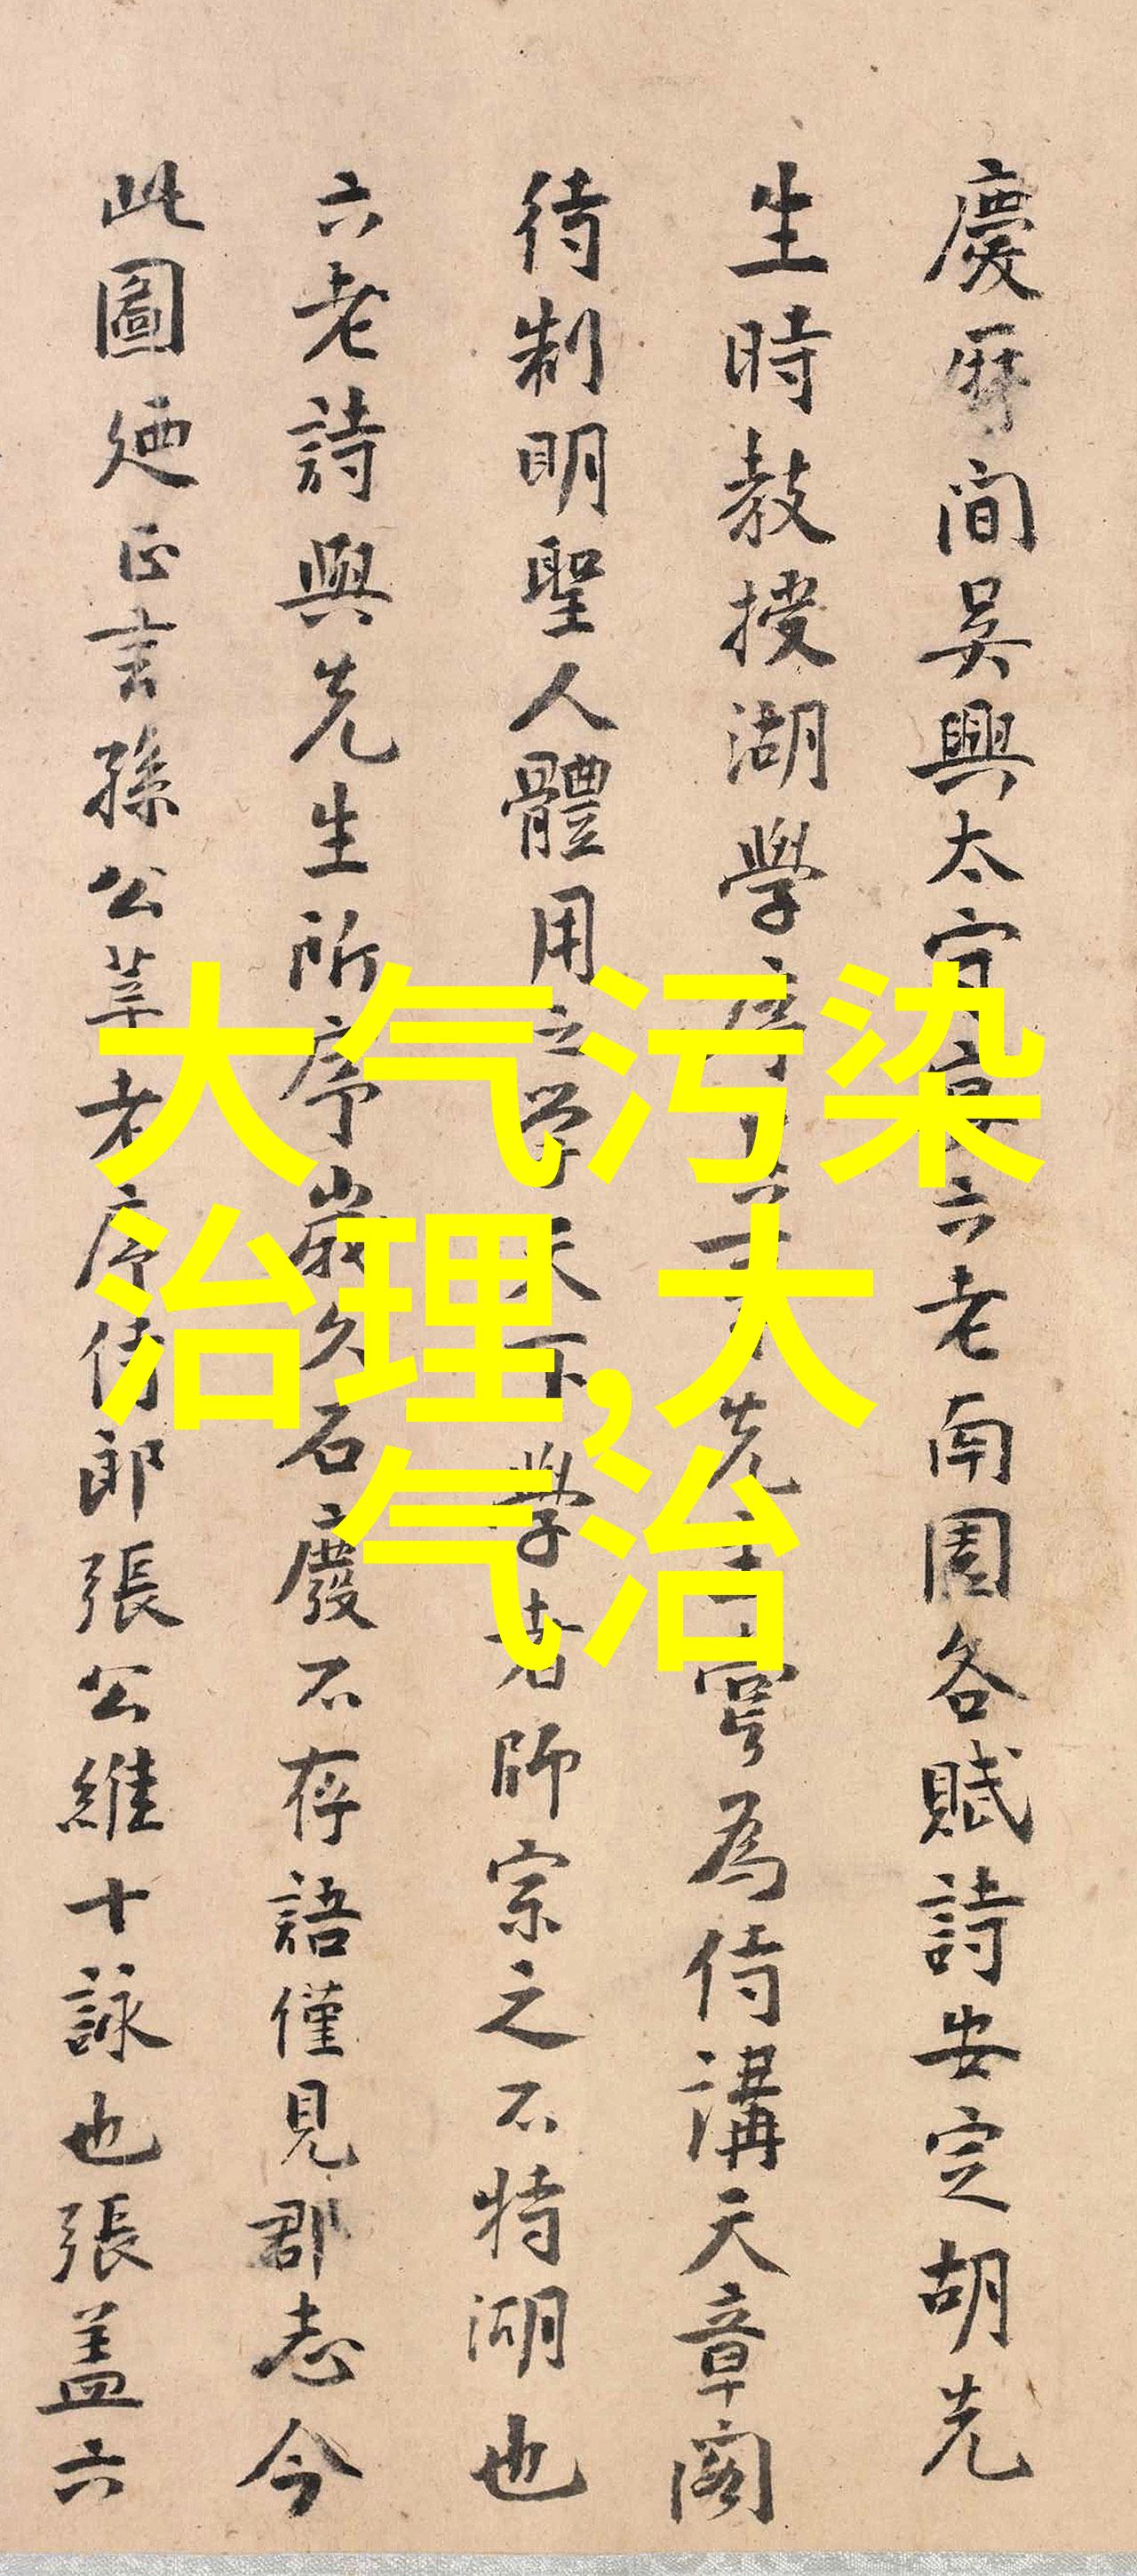 慶曆間吳興太守宴六老南園各賦詩安定胡先
生時教授湖學序其事先生尋為侍講天章閣
待制明聖人體用之學天下學者師宗之不特湖也
六老詩與先生所序歲久石廢不存語僅見郡志今
此圖廼正言孫公莘老序侍郎張公維十詠也張盖六
大气污染
治理,大
气治